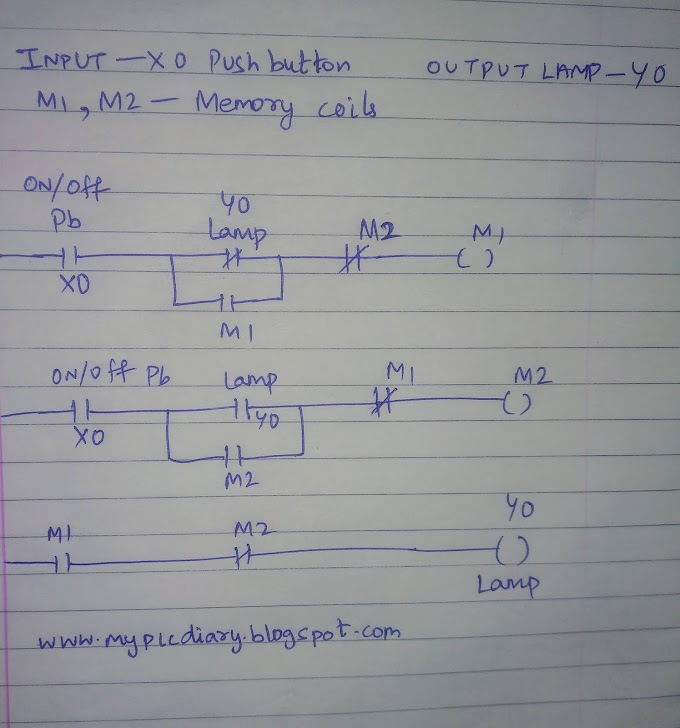 INPUT — X0 Push button OUTPUT LAMP — Y0
M1, M2 — Memory coils
ON/Off
Pb
Y0
Lamp
M2
M1
X0
M1
ON/Off Pb
Lamp
M1
M2
X0
Y0
M2
M1
M2
Y0
Lamp
www.myplcdiary.blogspot.com